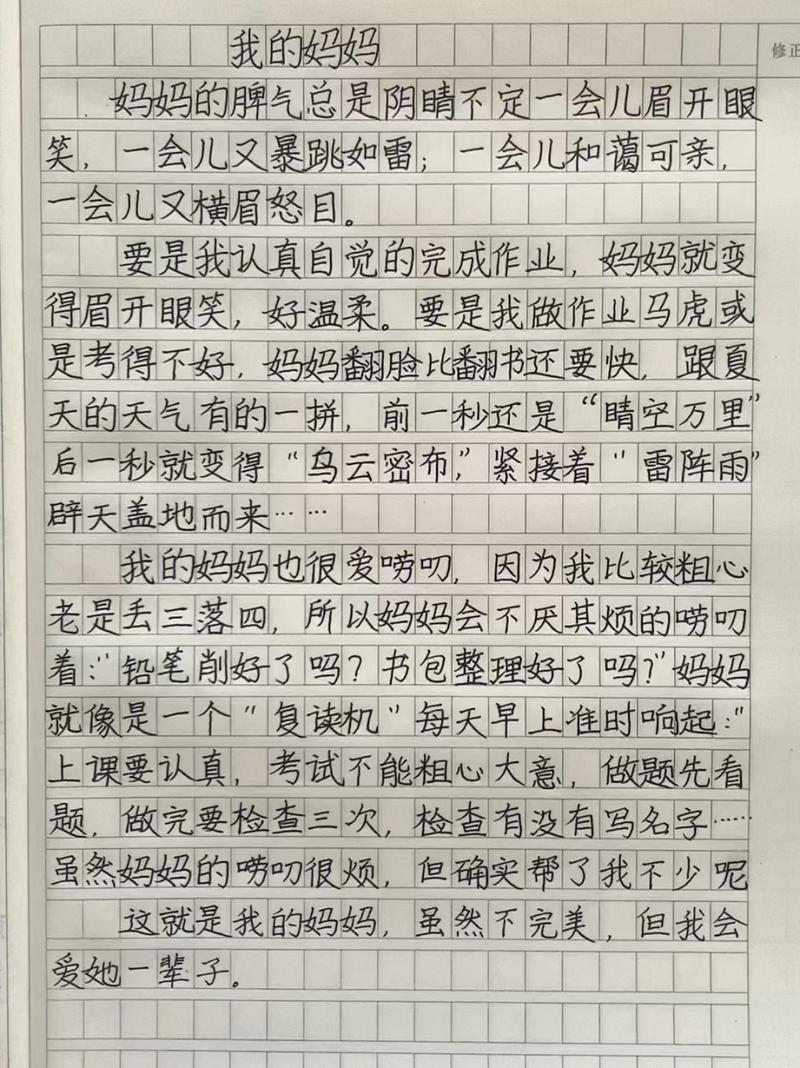 修正
我的妈妈
妈妈的脾气总是阴晴不定一会儿眉开眼
笑，一会儿又暴跳如雷；一会儿和蔼可亲，
一会儿又横眉怒目。
要是我认真自觉的完成作业，妈妈就变
得眉开眼笑，好温柔。要是我做作业马虎或
是考得不好，妈妈翻脸比翻书还要快，跟夏
天的天气有的一拼，前一秒还是“晴空万里”
后一秒就变得“乌云密布，”紧接着“雷阵雨”
辟天盖地而来……
我的妈妈也很爱唠叨，因为我比较粗心
老是丢三落四，所以妈妈会不厌其烦的唠叨
着：“铅笔削好了吗？书包整理好了吗？”妈妈
就像是一个“复读机”每天早上准时响起：“
上课要认真，考试不能粗心大意，做题先看
题，做完要检查三次，检查有没有写名字……
虽然妈妈的唠叨很烦，但确实帮了我不少呢
这就是我的妈妈，虽然不完美，但我会
爱她一辈子。